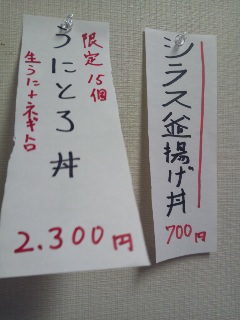 限定15個
うにとろ丼
生うに+ネギトロ
2.300円
シラス釜揚げ丼
700円